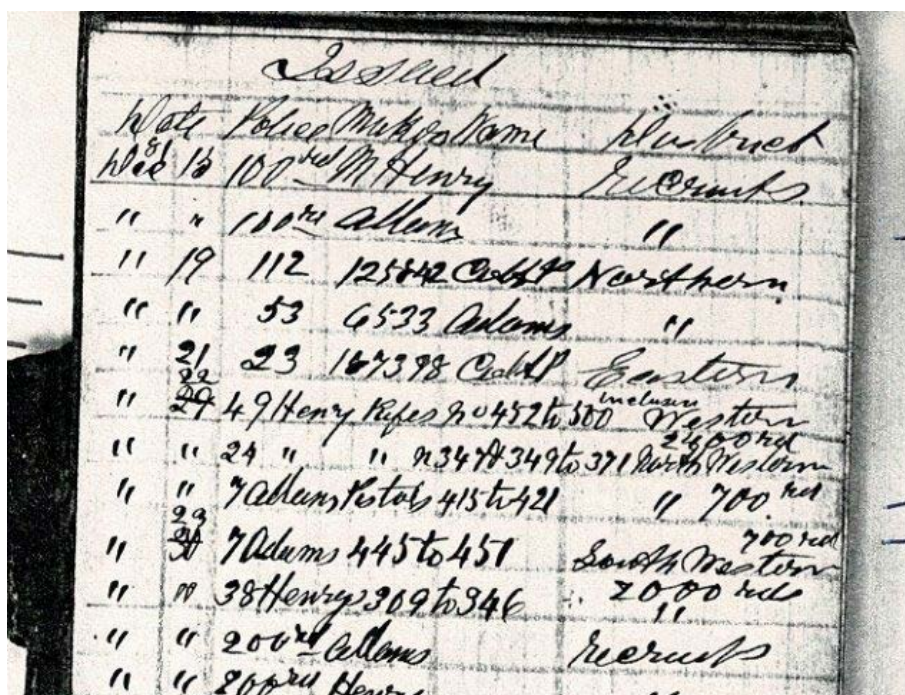 Issued
Date Police Makers Name District
Dec 13 100 rd M Henry Recruits
" " 100 rd Adams "
" 19 112 125842 Colt P Northern
" " 53 6533 Adams "
" 21 23 167398 Colt P Eastern
" 22 49 Henry Rifles No 452 to 500 inclusive Western
2400 rd
" " 24 " " 349 to 371 North Western
" " 7 Adams Pistols 415 to 421 " 700 rd
" 23 7 Adams 445 to 451 South Western 700 rd
" " 38 Henrys 309 to 346 " 2000 rds
" " 200 rd Adams Recruits
" " 200 rd Henry "